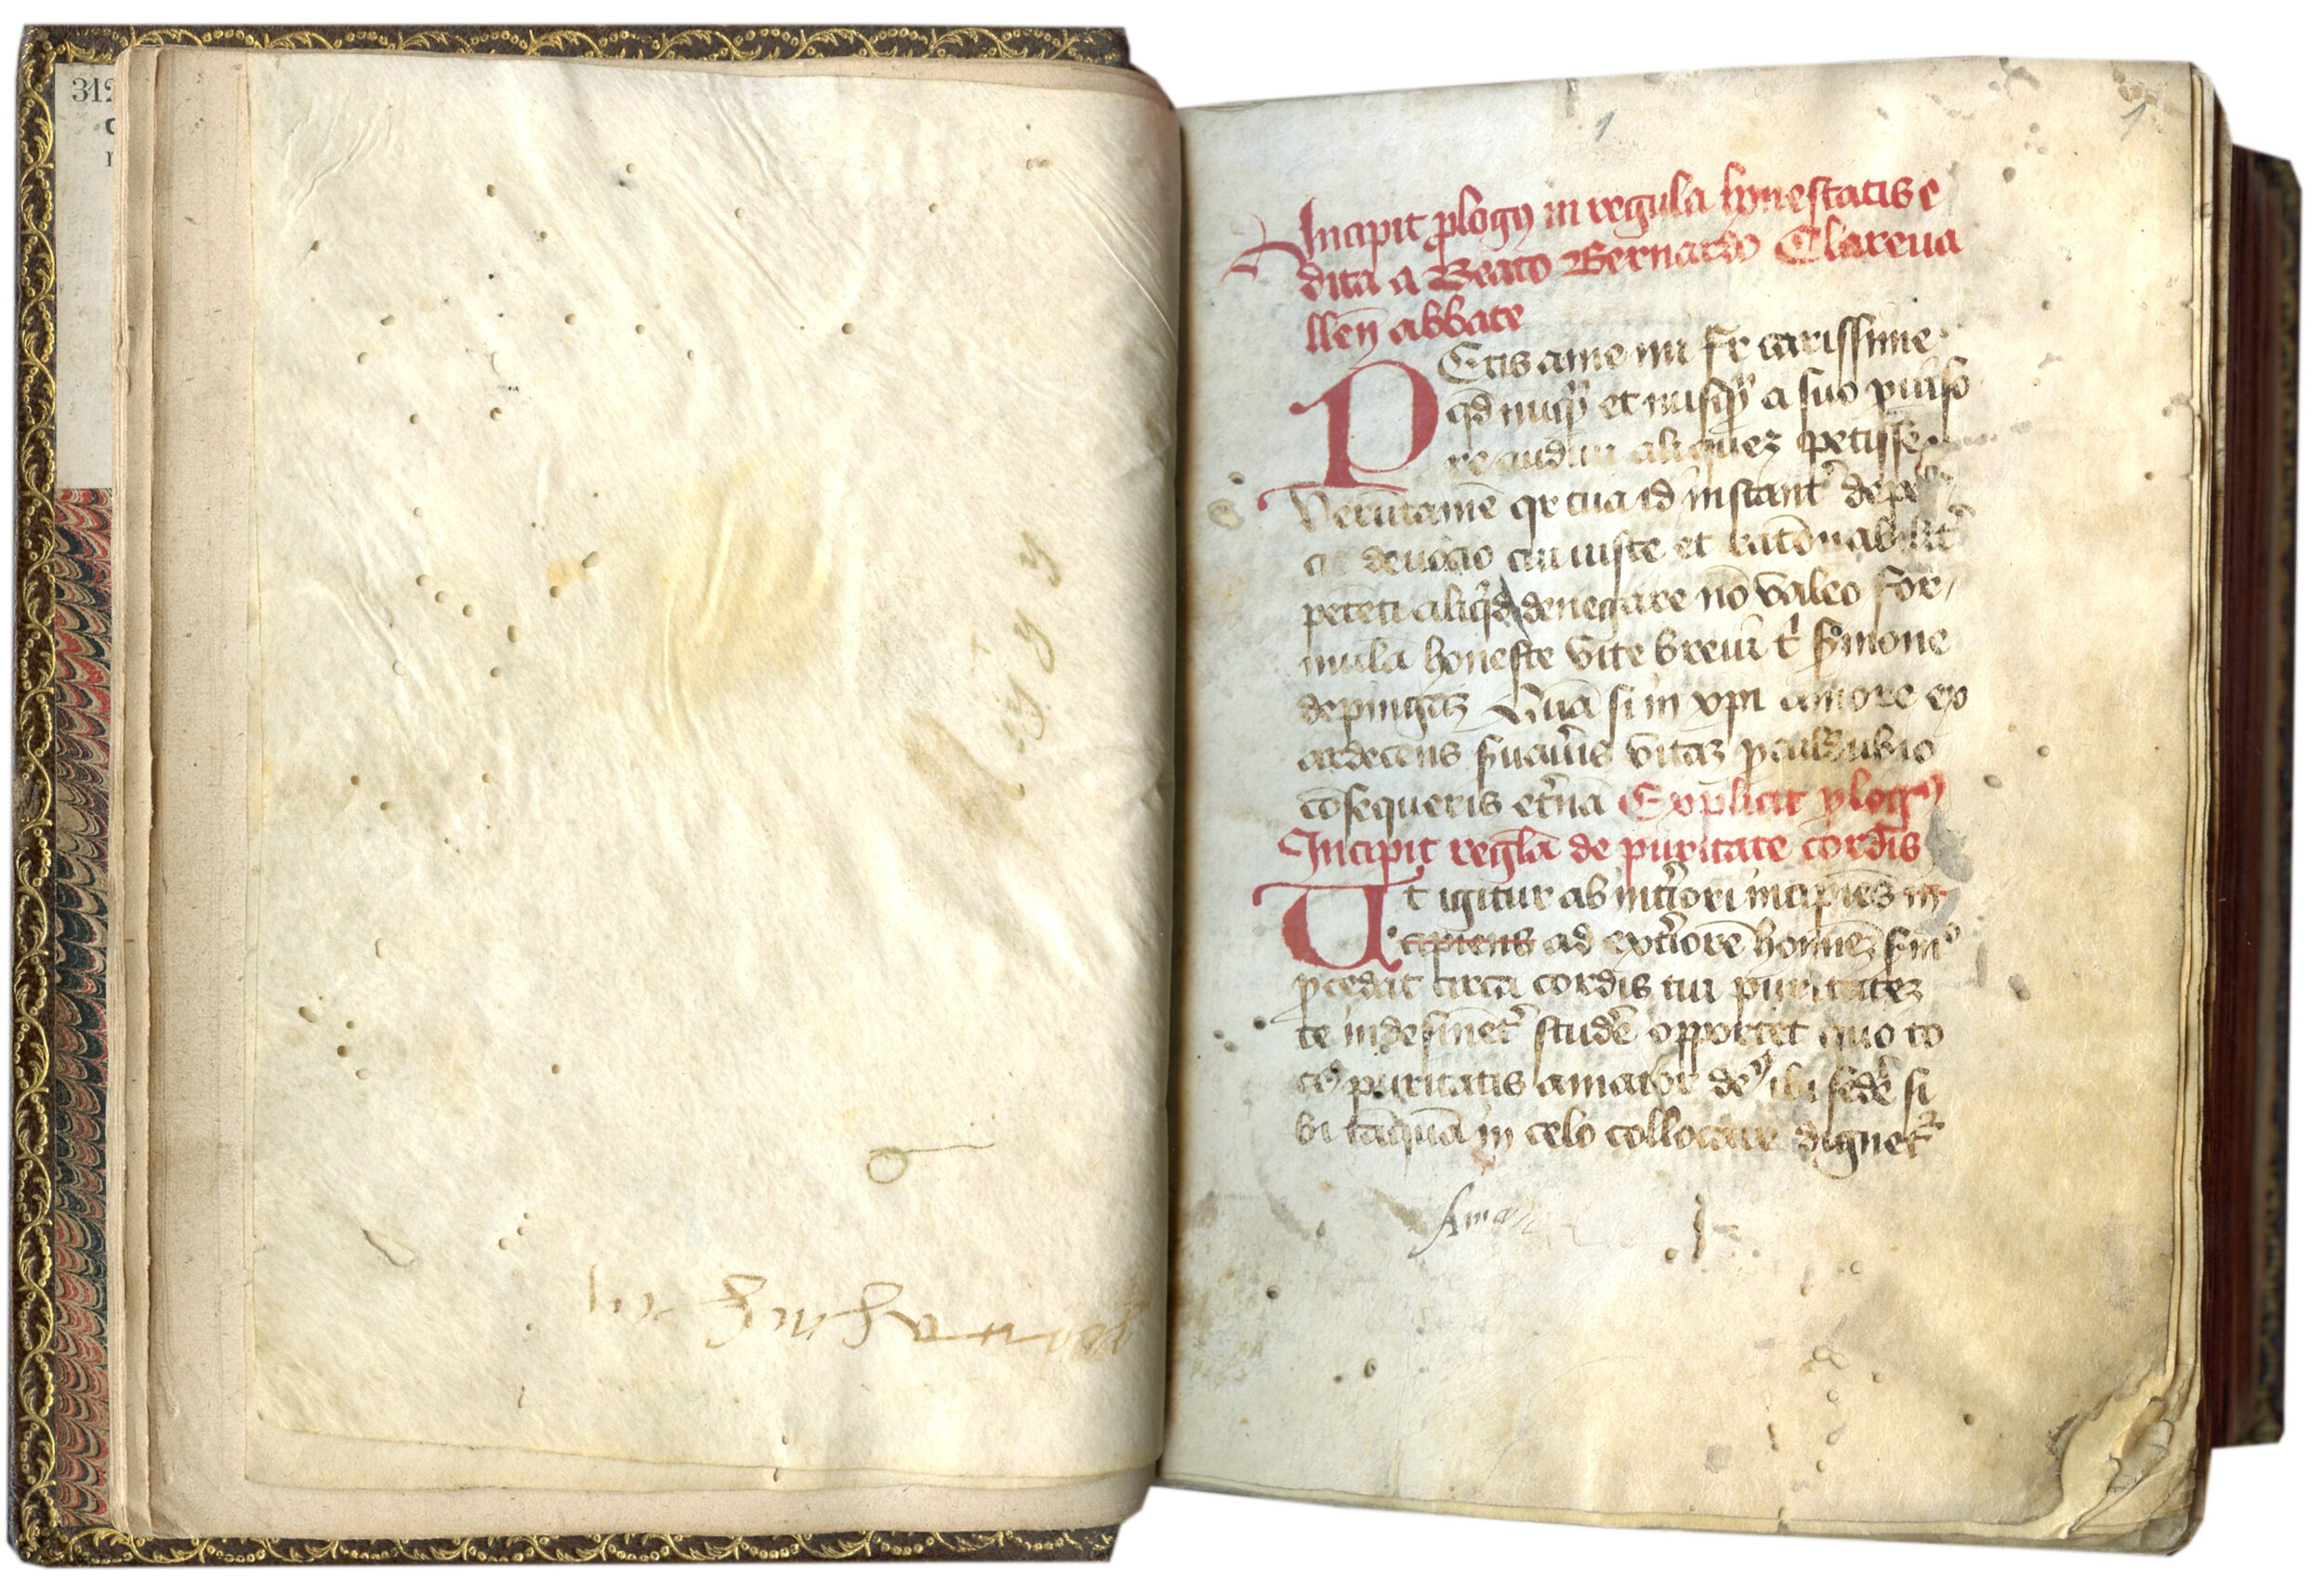 312
1 1
Incipit plogꝯ in regula honestatis e
dita a Beato Bernardo Clareua
lleñ abbate
PEtis a me mi fr carissime
qd nuqꝫ et nusqꝫ a suo puiso
re audiui aliquez petisse
Verūtamē qr tua id instant̉ depos
cit deuocio cui iuste et racōnabilit̉
petēti aliqd denegare nō valeo for
mulā honeste vite breui t̉ s̉mone
depingaz Quā si in xpi amore ex
ardecens s̉uaueris vitaz pculdubio
cōsequeris et̉nā Explicit plogꝯ
Incipit regl̄a de puritate cordis
Ut igitur ab int̉iori incipiēs in
cipiens ad ext̉iorē hominez s̉mo
pcedat circa cordis tui puritatez
te indesinēt̉ studē opportet quo to
ciꝯ puritatis amator deꝯ ibi sedē si
bi tāquā in celo collocare dignet̉
Amen